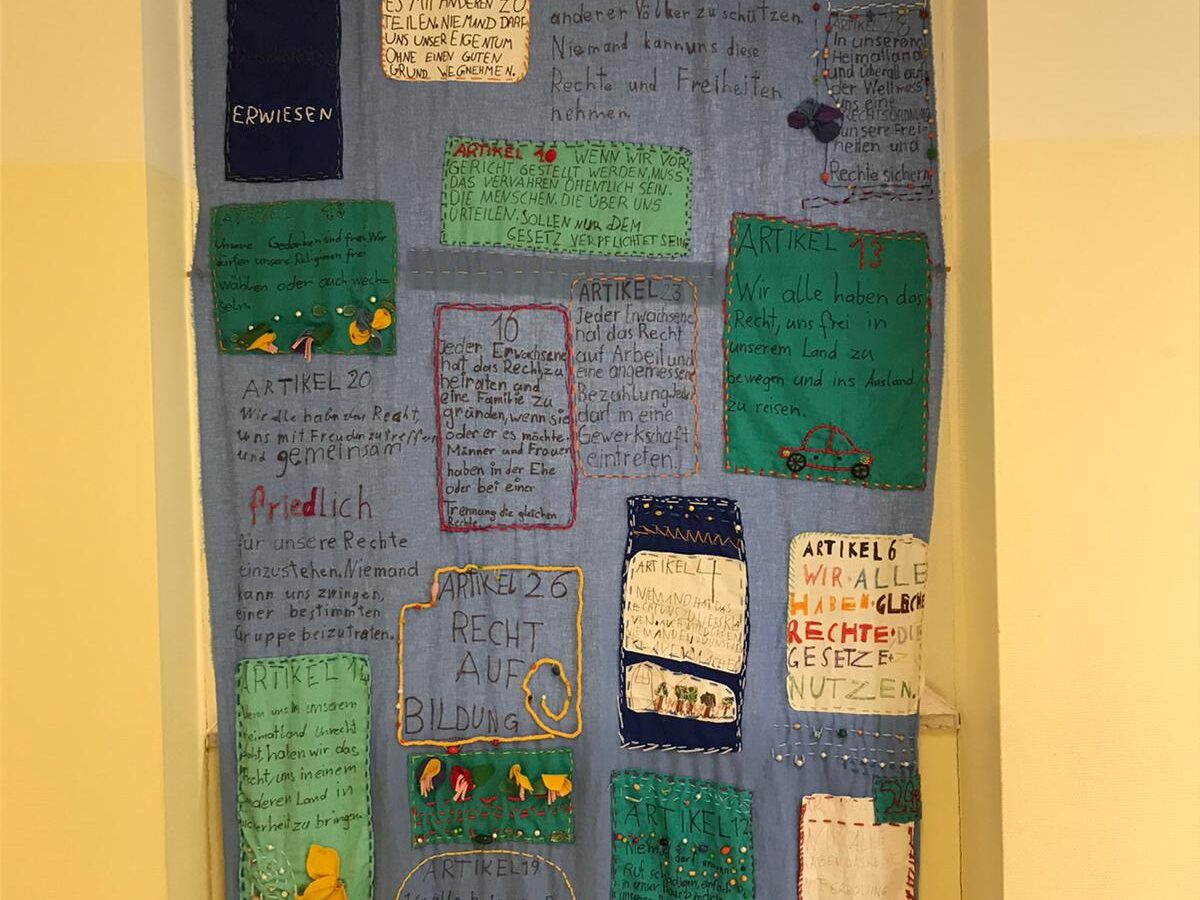 ERWIESEN
ES MIT ANDEREN ZU
TEILEN. NIEMAND DARF
UNS UNSER EIGENTUM
OHNE EINEN GUTEN
GRUND WEGNEHMEN.
anderer Völker zu schützen.
Niemand kann uns diese
Rechte und Freiheiten
nehmen.
ARTIKEL 28
In unserem
Heimatland
und überall auf
der Welt muss
uns eine
RECHTSORDNUNG
unsere Frei-
heiten und
Rechte sichern
ARTIKEL 10 WENN WIR VOR
GERICHT GESTELLT WERDEN, MUSS
DAS VERVAHREN ÖFFENTLICH SEIN.
DIE MENSCHEN, DIE ÜBER UNS
URTEILEN, SOLLEN NUR DEM
GESETZ VERPFLICHTET SEIN
Unsere Gedanken sind frei. Wir
dürfen unsere Religionen frei
wählen oder auch wech-
seln.
ARTIKEL 13
Wir alle haben das
Recht, uns frei in
unserem Land zu
bewegen und ins Ausland
zu reisen.
16
Jeder Erwachsene
hat das Recht, zu
heiraten und
eine Familie zu
gründen, wenn sie
oder er es möchte.
Männer und Frauen
haben in der Ehe
oder bei einer
Trennung die gleichen
Rechte.
ARTIKEL 23
Jeder Erwachsene
hat das Recht
auf Arbeit und
eine angemessene
Bezahlung. Jeder
darf in eine
Gewerkschaft
eintreten.
ARTIKEL 20
Wir alle haben das Recht,
uns mit Freunden zu treffen
und gemeinsam
friedlich
für unsere Rechte
einzustehen. Niemand
kann uns zwingen,
einer bestimmten
Gruppe beizutreten.
ARTIKEL 26
RECHT
AUF
BILDUNG
ARTIKEL 4
NIEMAND HAT DAS
ARTIKEL 6
WIR ALLE
HABEN GLEICHE
RECHTE DIE
GESETZE ZU
NUTZEN.
ARTIKEL 14
Wenn uns in unserem
Heimatland Unrecht
haben wir das
Recht, uns in einem
anderen Land in
Sicherheit zu bringen.
ARTIKEL 12
ARTIKEL 19